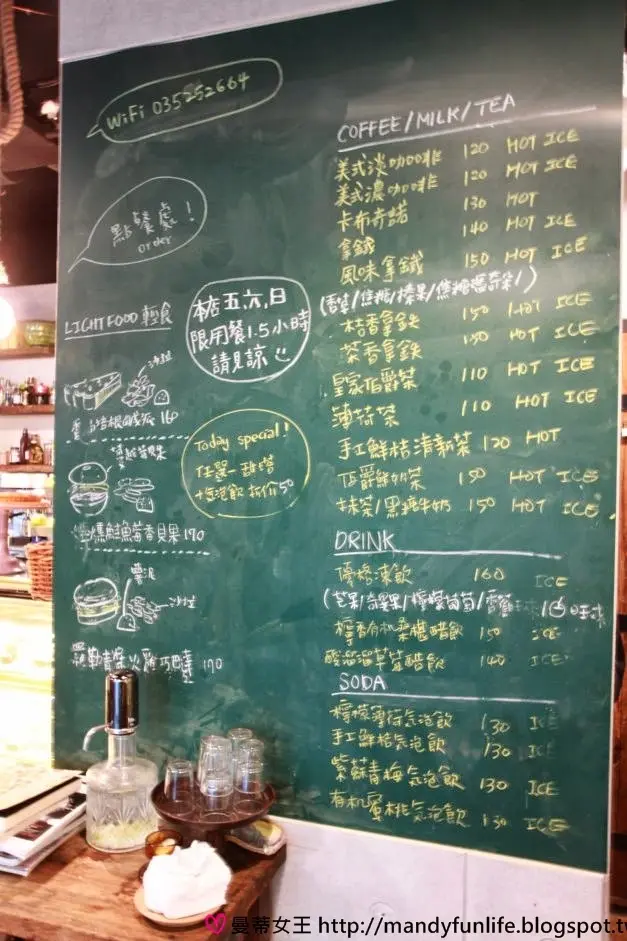 WiFi 035252664
點餐處!
order
本店五六,日
限用餐1.5小時
請見諒
LIGHT FOOD 輕食
沙拉
培根鹹派 160
Today special!
任選一甜塔
+氣泡飲 折價50
燻鮭魚茴香貝果 170
栗泥
沙拉
羅勒青醬火雞巧巴達 170
COFFEE/MILK/TEA
美式淡咖啡 120 HOT ICE
美式濃咖啡 120 HOT ICE
卡布奇諾 130 HOT
拿鐵 140 HOT ICE
風味拿鐵 150 HOT ICE
(香草/焦糖/榛果/焦糖瑪奇朵/)
桔香拿鐵 150 HOT ICE
茶香拿鐵 150 HOT ICE
皇家伯爵茶 110 HOT ICE
薄荷茶 110 HOT ICE
手工鮮桔清新茶 120 HOT
伯爵鮮奶茶 150 HOT ICE
抹茶/黑糖牛奶 150 HOT ICE
DRINK
優格凍飲 160 ICE
(芒果/奇異果/檸檬葡萄/
檸香有机桑椹醋飲 150 ICE
酸溜溜草莓醋飲 140 ICE
SODA
檸檬薄荷氣泡飲 130 ICE
手工鮮桔氣泡飲 130 ICE
紫蘇青梅氣泡飲 130 ICE
有机蜜桃氣泡飲 130 ICE
曼蒂女王 http://mandyfunlife.blogspot.tw